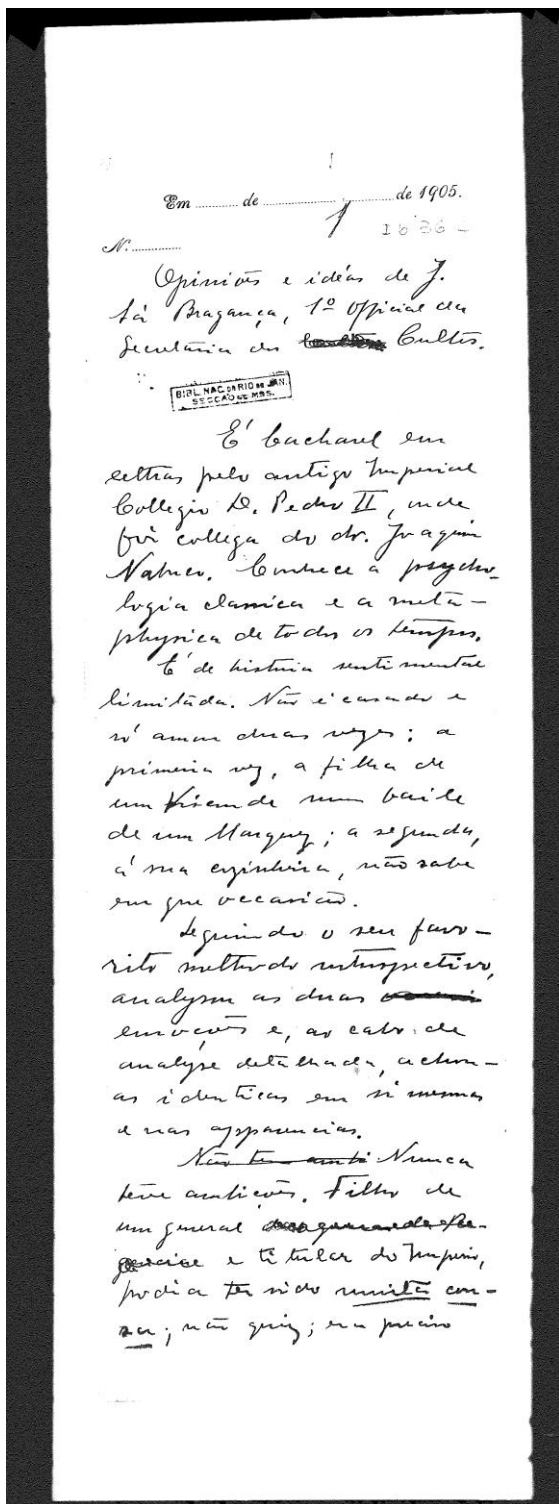 Em ............ de ........................ de 1905.
1
N. ............
Opiniões e idéas de J.
Sá Bragança, 1º official da
Secretaria dos Cultos.
BIBL. NAC. DO RIO DE JAN.
SECCÃO DE MSS.
E' bacharel em
lettras pelo antigo Imperial
Collegio D. Pedro II, onde
foi collega do dr. Joaquim
Nabuco. Conhece a psycho-
logia classica e a meta-
physica de todos os tempos.
E' de historia sentimental
limitada. Não é casado e
só amou duas vezes; a
primeira vez, a filha de
um Visconde num baile
de um Marquez; a segunda,
á sua cozinheira, não sabe
em que occasião.
Seguindo o seu favo-
rito methodo introspectivo,
analysou as duas
emoções e, ao cabo de
analyse detalhada, achou-
as identicas em si mesmas
e nas apparencias.
Não tem ambi Nunca
teve ambições. Filho de
um general
e titular do Imperio,
podia ter sido muita cou-
sa; não quiz; era preciso